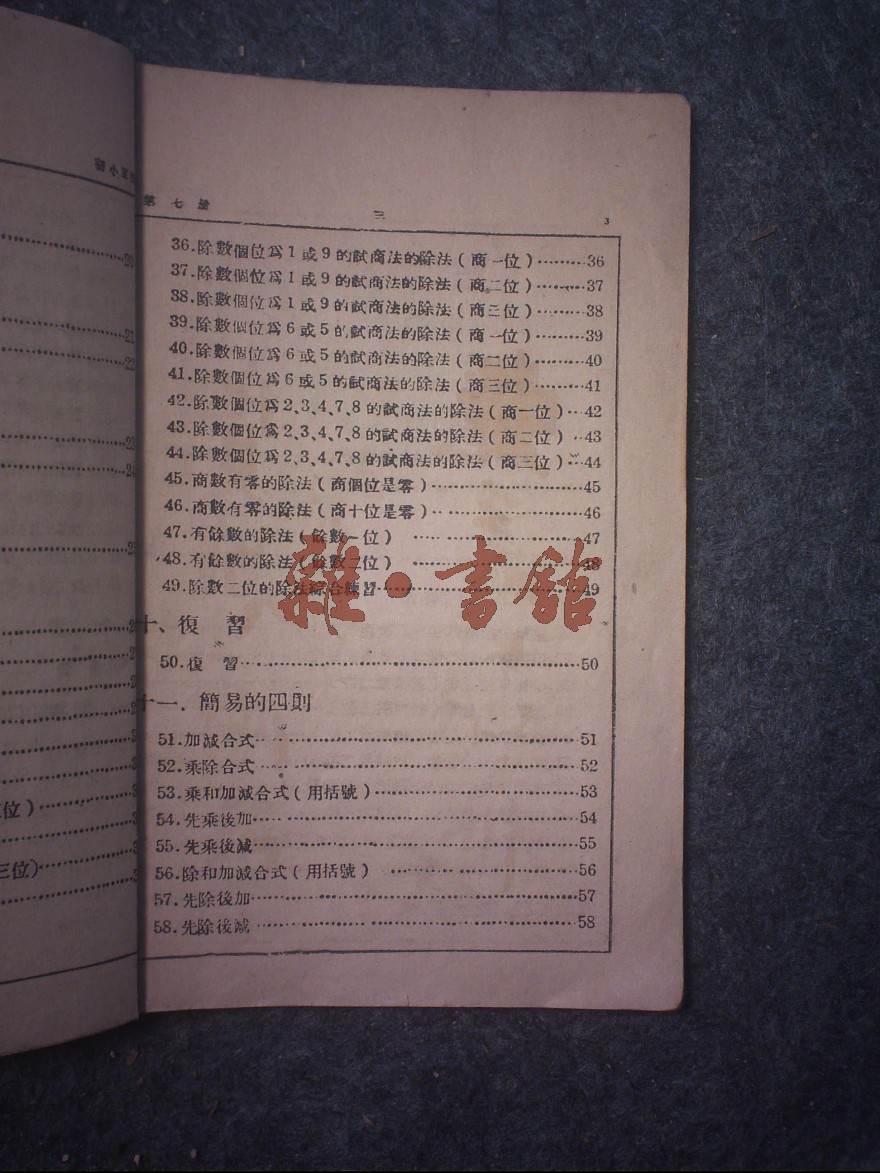 初小
第七册 三 3
36.除數個位爲1或9的試商法的除法(商一位)………36
37.除數個位爲1或9的試商法的除法(商二位)………37
38.除數個位爲1或9的試商法的除法(商三位)………38
39.除數個位爲6或5的試商法的除法(商一位)………39
40.除數個位爲6或5的試商法的除法(商二位)………40
41.除數個位爲6或5的試商法的除法(商三位)………41
42.除數個位爲2、3、4、7、8的試商法的除法(商一位)…42
43.除數個位爲2、3、4、7、8的試商法的除法(商二位)…43
44.除數個位爲2、3、4、7、8的試商法的除法(商三位)…44
45.商數有零的除法(商個位是零)………………45
46.商數有零的除法(商十位是零)………………46
47.有餘數的除法(餘數一位)………………47
48.有餘數的除法(餘數二位)………………48
49.除數二位的除法綜合練習………………49
雜·書館
十、復習
50.復習………………50
十一.簡易的四則
51.加减合式………………51
52.乘除合式………………52
53.乘和加減合式(用括號)………………53
54.先乘後加………………54
55.先乘後減………………55
56.除和加減合式(用括號)………………56
57.先除後加………………57
58.先除後減………………58
位)
三位)